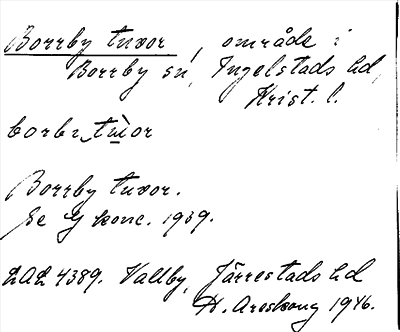 Borrby tuvor, område i
Borrby sn, Ingelstads hd,
Krist. l.
Borrby tuvor.
Se Ej konc. 1939.
LAL 4389. Vallby, Järrestads hd
H. Areskoug 1946.